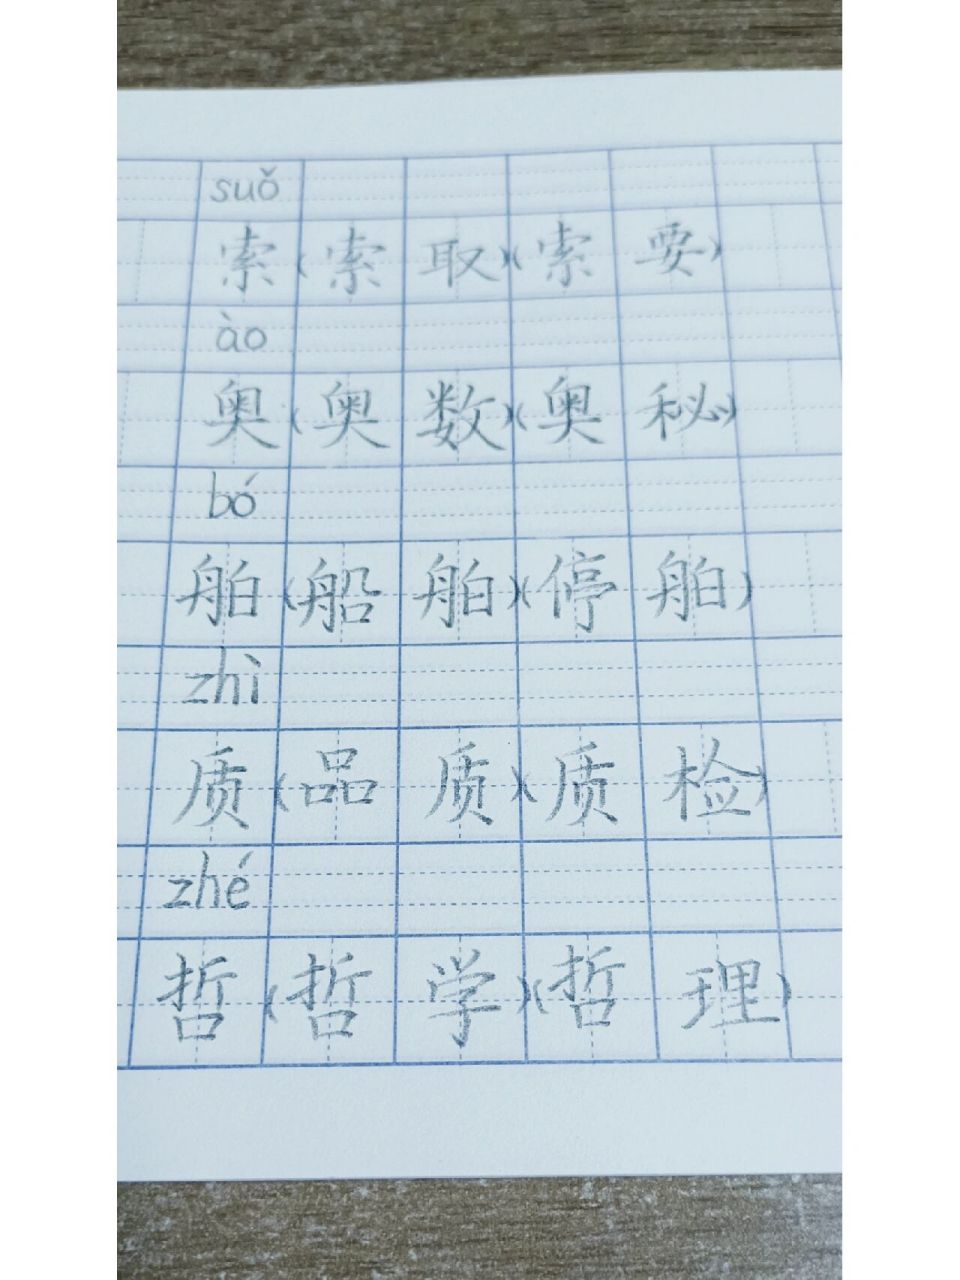 suǒ
索(索取)(索要)
ào
奥(奥数)(奥秘)
bó
舶(船舶)(停舶)
zhì
质(品质)(质检)
zhé
哲(哲学)(哲理)